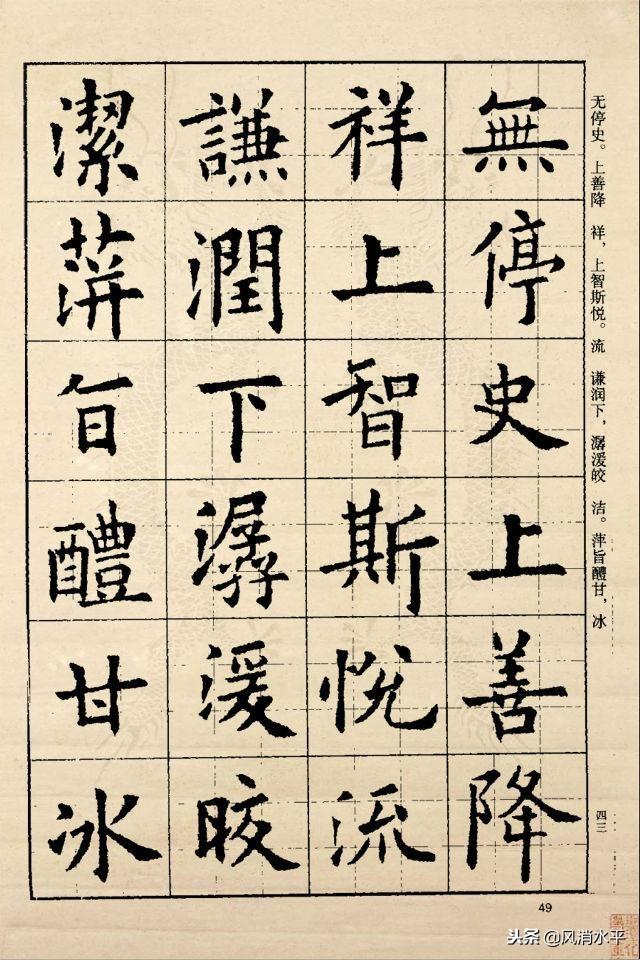 无停史。上善降 祥，上智斯悦。流 谦润下，潺湲皎 洁。萍旨醴甘，冰
四三
無停史上善降
祥上智斯悅流
謙潤下潺湲晈
潔萍旨醴甘冰
49
头条 @风消水平